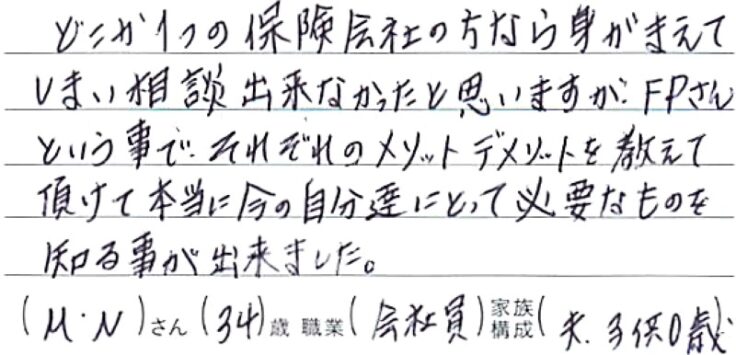 どこか1つの保険会社の方なら身がまえて
しまい相談出来なかったと思いますが、FPさん
という事で、それぞれのメリットデメリットを教えて
頂けて本当に今の自分達にとって必要なものを
知る事が出来ました。
(M・N)さん (34)歳 職業(会社員)家族構成(夫、子供0歳)